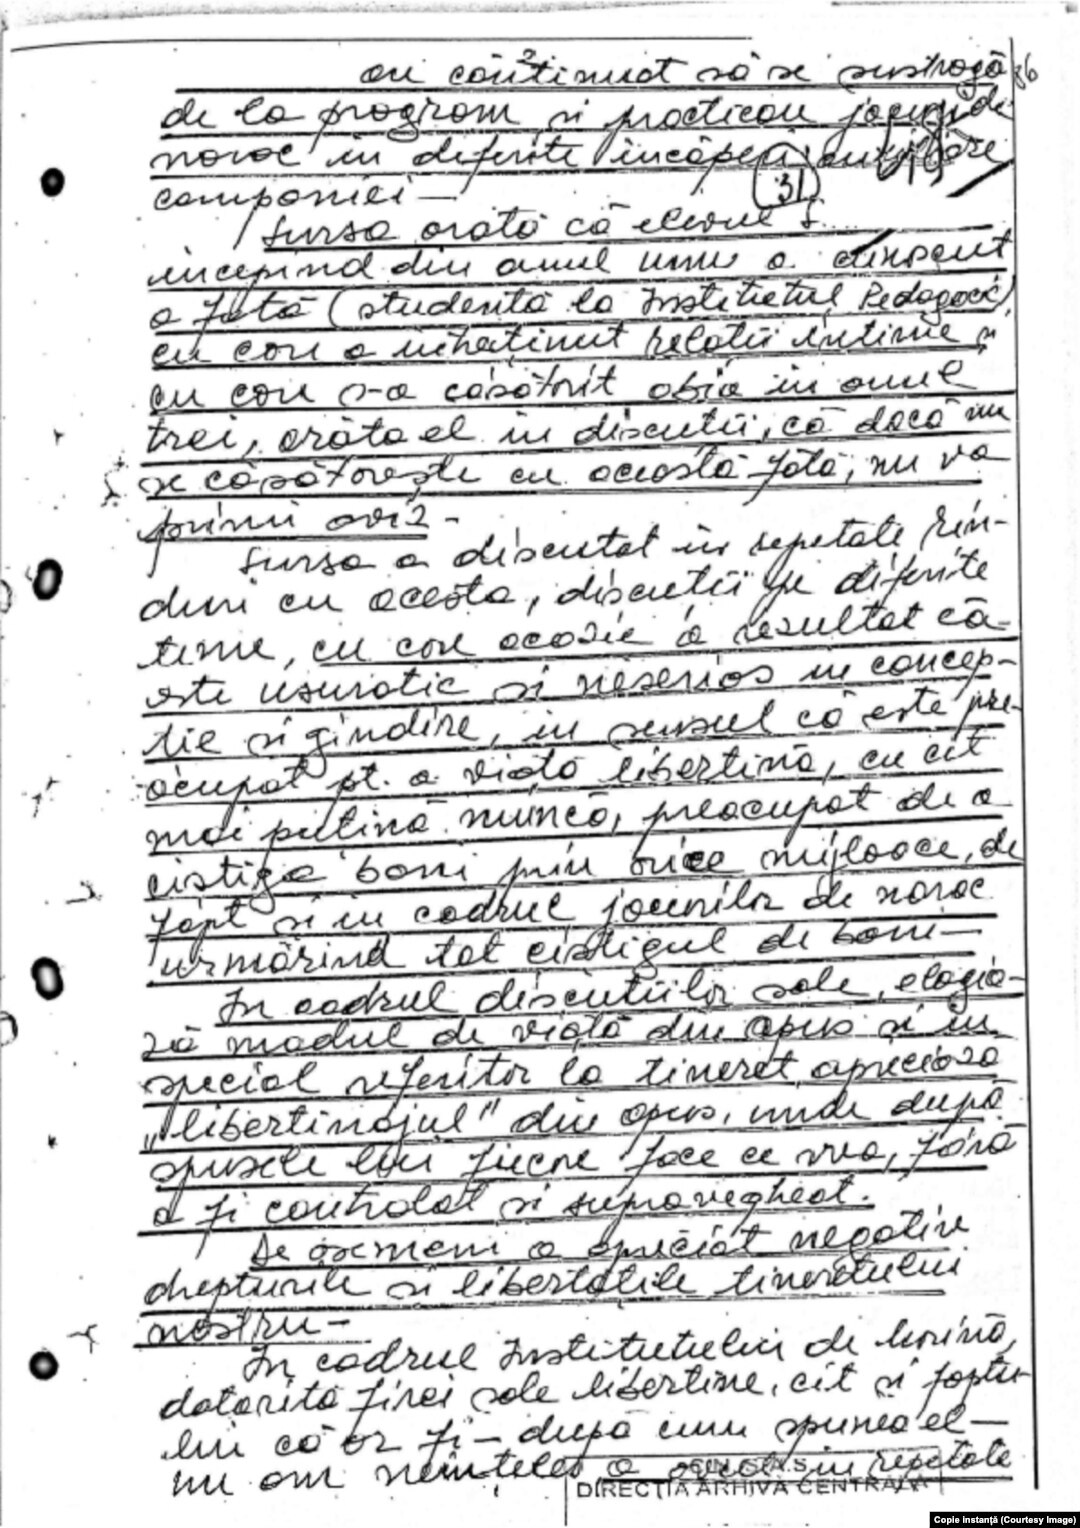 2
au continuat să se sustragă 86
de la program și practicau jocuri de
noroc în diferite încăperi
companiei —
31
Sursa arată că elevul
începînd din anul unu a cunoscut
o fată (studentă la Institutul Pedagogic)
cu care a întreținut relații intime și
cu care s-a căsătorit abia în anul
trei, arăta el în discuții, că dacă nu
se căsătorește cu această fată, nu va
primi aviz -
Sursa a discutat în repetate rîn-
duri cu acesta, discuții pe diferite
teme, cu care ocazie a rezultat că
este ușuratic și neserios în concep-
ție și gîndire, în sensul că este pre-
ocupat pt. o viață libertină, cu cît
mai puțină muncă, preocupat de a
cîștiga bani prin orice mijloace, de
fapt și în cadrul jocurilor de noroc
urmărind tot cîștigul de bani —
În cadrul discuțiilor sale, elogia-
ză modul de viață din apus și în
special referitor la tineret, apreciază
„libertinajul" din apus, unde după
spusele lui fiecare face ce vrea, fără
a fi controlat și supravegheat.
De asemeni a apreciat negativ
drepturile și libertățile tineretului
nostru —
În cadrul Institutului de Marină,
datorită firei sale libertine, cît și faptu-
lui că ar fi — după cum spunea el —
nu am neînțeles a în repetate
C.N.S.A.S.
DIRECȚIA ARHIVA CENTRALĂ
Copie instanță (Courtesy Image)